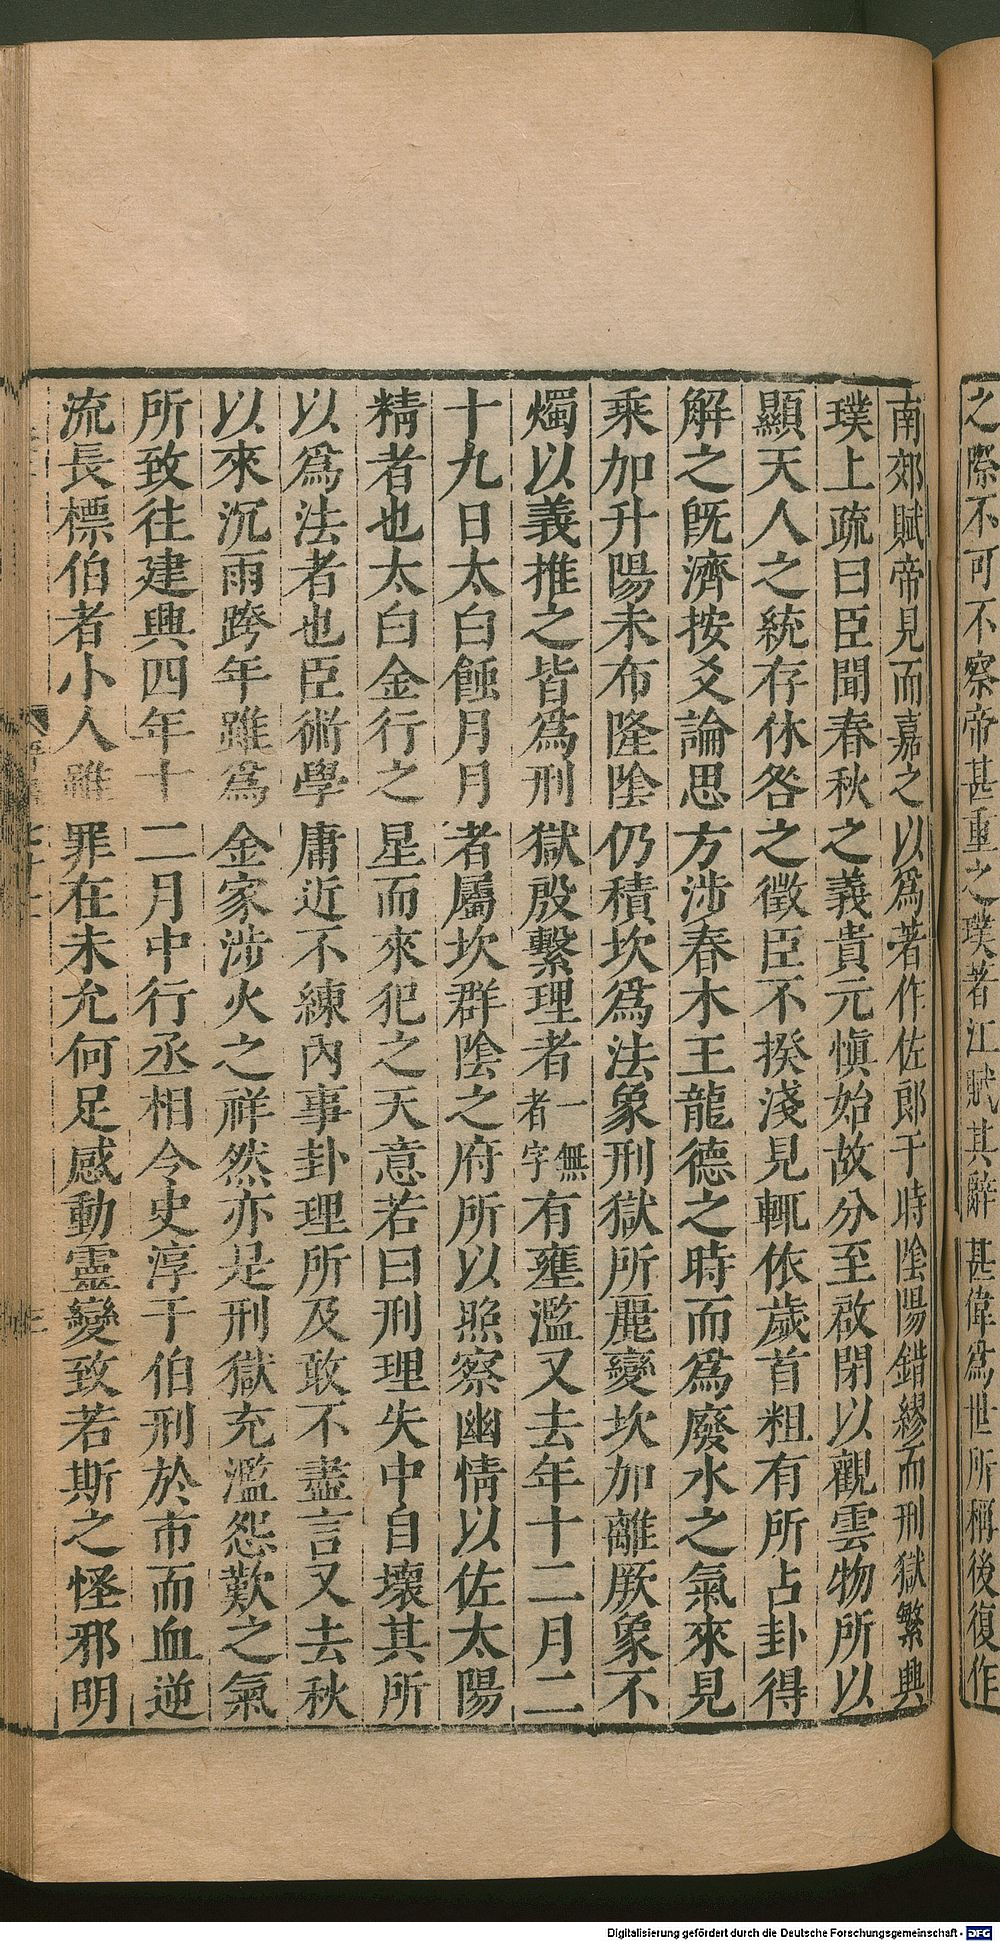 之際不可不察帝甚重之璞著江賦其辭甚偉爲世所稱後復作
南郊賦帝見而嘉之以爲著作佐郎于時陰陽錯繆而刑獄繁興
璞上疏曰臣聞春秋之義貴元愼始故分至啟閉以觀雲物所以
顯天人之統存休咎之徵臣不揆淺見輒依歲首粗有所占卦得
解之旣濟按爻論思方涉春木王龍德之時而爲廢水之氣來見
乘加升陽未布隆陰仍積坎爲法象刑獄所麗變坎加離厥象不
燭以義推之皆爲刑獄殷繫理者一無者字有壅濫又去年十二月二
十九日太白蝕月月者屬坎群陰之府所以照察幽情以佐太陽
精者也太白金行之星而來犯之天意若曰刑理失中自壞其所
以爲法者也臣術學庸近不練內事卦理所及敢不盡言又去秋
以來沉雨跨年雖爲金家涉火之祥然亦是刑獄充濫怨歎之氣
所致往建興四年十二月中行丞相令史淳于伯刑於市而血逆
流長標伯者小人雖罪在未允何足感動靈變致若斯之怪邪明
Digitalisierung gefördert durch die Deutsche Forschungsgemeinschaft - DFG